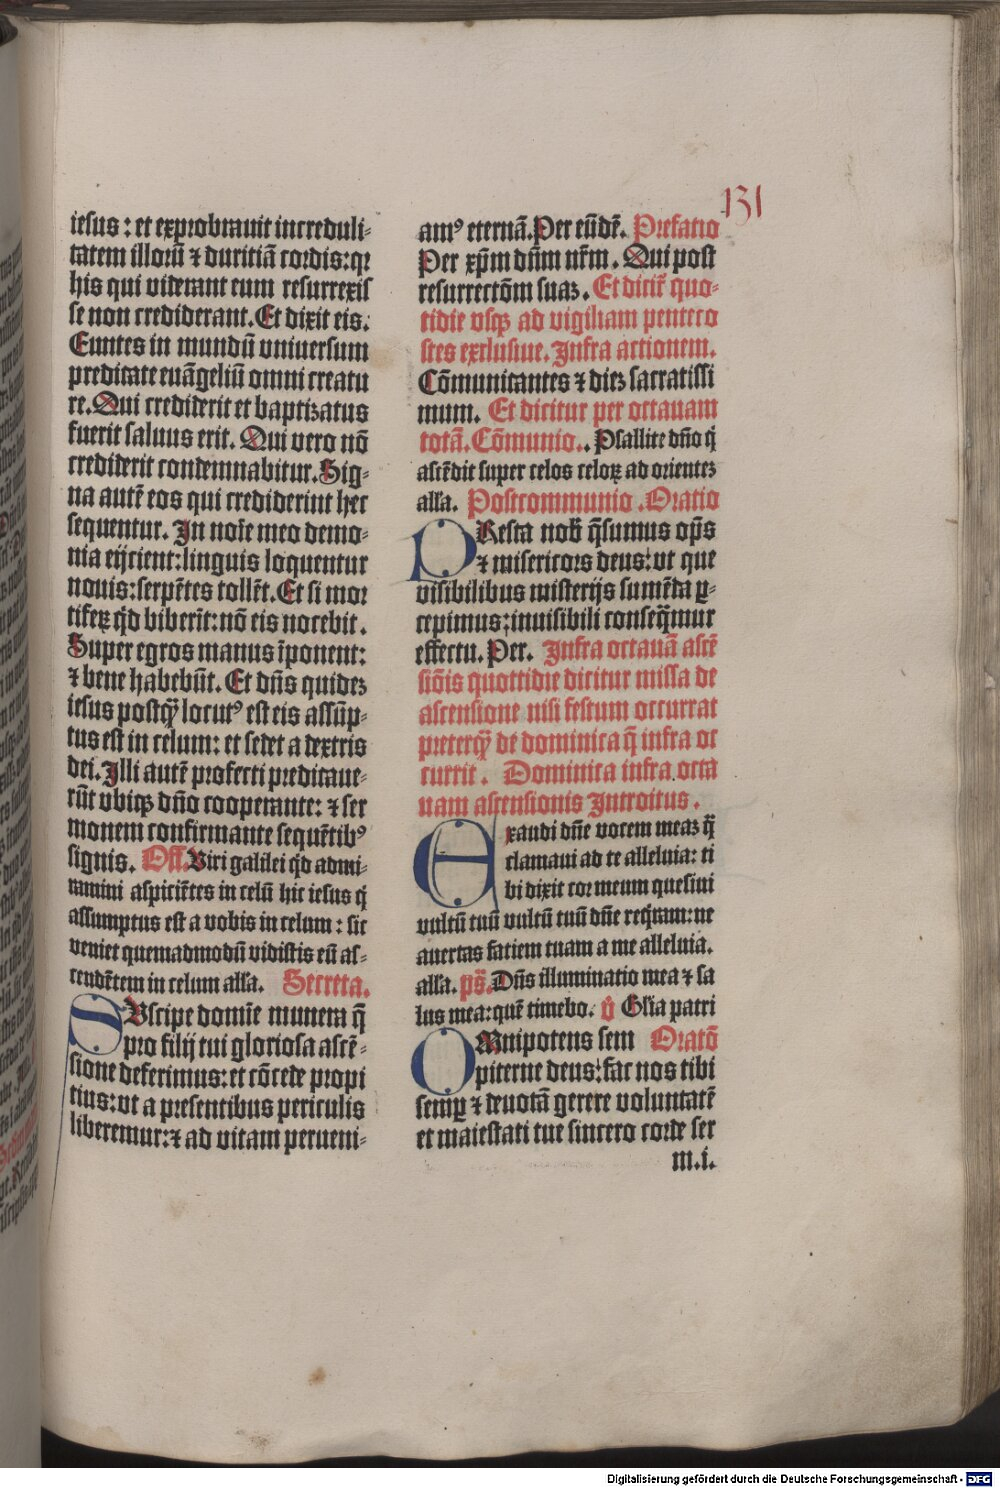 131
iesus : et exprobrauit increduli-
tatem illorū ⁊ duritiā cordis: qꝛ
his qui viderant eum resurrexis
se non crediderant. Et dixit eis:
Euntes in mundū vniuersum
predicate euāgeliū omni creatu
re. Qui crediderit et baptizatus
fuerit saluus erit. Qui vero nō
crediderit condemnabitur. Sig-
na autē eos qui crediderint hec
sequentur. In noīe meo demo-
nia eijcient: linguis loquentur
nouis: serpētes tollēt. Et si mor
tiferꝫ qd̄ biberīt: nō eis nocebit.
Super egros manus īponent:
⁊ bene habebūt. Et dn̄s quideꝫ
iesus postqꝫ locutꝰ est eis assūp-
tus est in celum: et sedet a dextris
dei. Illi autē profecti predicaue-
rūt vbiqꝫ dn̄o cooperante: ⁊ ser
monem confirmante sequētibꝰ
signis. Off. Viri galilei qd̄ admi-
ramini aspiciētes in celū hic iesus q̄
assumptus est a vobis in celum : sic
veniet quemadmodū vidistis eū as-
cendētem in celum alľa. Secreta.
SVscipe domīe munera q̄
pro filij tui gloriosa ascē-
sione deferimus: et cōcede propi
tius: vt a presentibus periculis
liberemur: ⁊ ad vitam perueni-
amꝰ eternā. Per eūdē. Prefatio
Per xp̄m dn̄m nr̄m. Qui post
resurrectōm suaꝫ. Et dicit̄ quo-
tidie vsqꝫ ad vigiliam penteco
stes exclusiue. Infra actionem.
Cōmunicantes ⁊ dieꝫ sacratissi
mum. Et dicitur per octauam
totā. Cōmunio.. Psallite dn̄o q̄
ascēdit super celos celoꝝ ad orienteꝫ
alľa. Postcommunio. Oratio
PResta nob̄ q̄sumus op̄s
⁊ misericors deus: vt que
visibilibus misterijs sumēda ꝑ-
cepimus; inuisibili conseq̄mur
effectu. Per. Infra octauā ascē
siōis quottidie dicitur missa de
ascensione nisi festum occurrat
preterqꝫ de dominica q̄ infra oc
currit. Dominica infra octa
uam ascensionis Introitus.
Exaudi dn̄e vocem meaꝫ q̄
clamaui ad te alleluia: ti
bi dixit cor meum quesiui
vultū tuū vultū tuū dn̄e req̄ram: ne
auertas faciem tuam a me alleluia.
alľa. ps̄. Dn̄s illuminatio mea ⁊ sa
lus mea: quē timebo. ꝟ Glīa patri
OMnipotens sem Oratō
piterne deus: fac nos tibi
semꝑ ⁊ deuotā gerere voluntatē
et maiestati tue sincero corde ser
m.i.
Digitalisierung gefördert durch die Deutsche Forschungsgemeinschaft - DFG